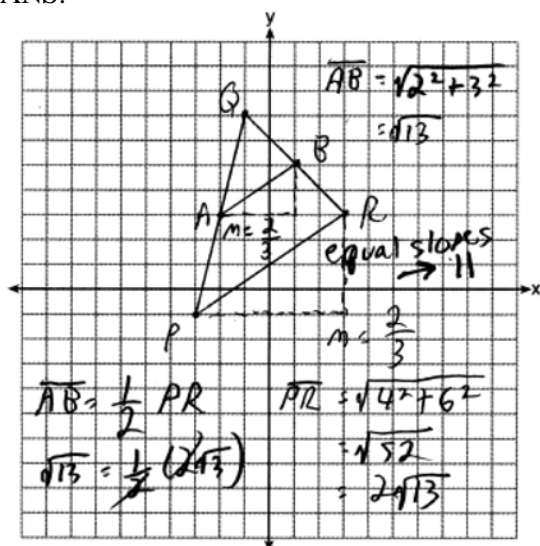 ANS:
y
Q
AB = √2² + 3²
= √13
B
A
R
m = 2/3
equal slopes
→ ||
x
P
m = 2/3
AB = 1/2 PR
√13 = 1/2 (2√13)
PR = √4² + 6²
= √52
= 2√13